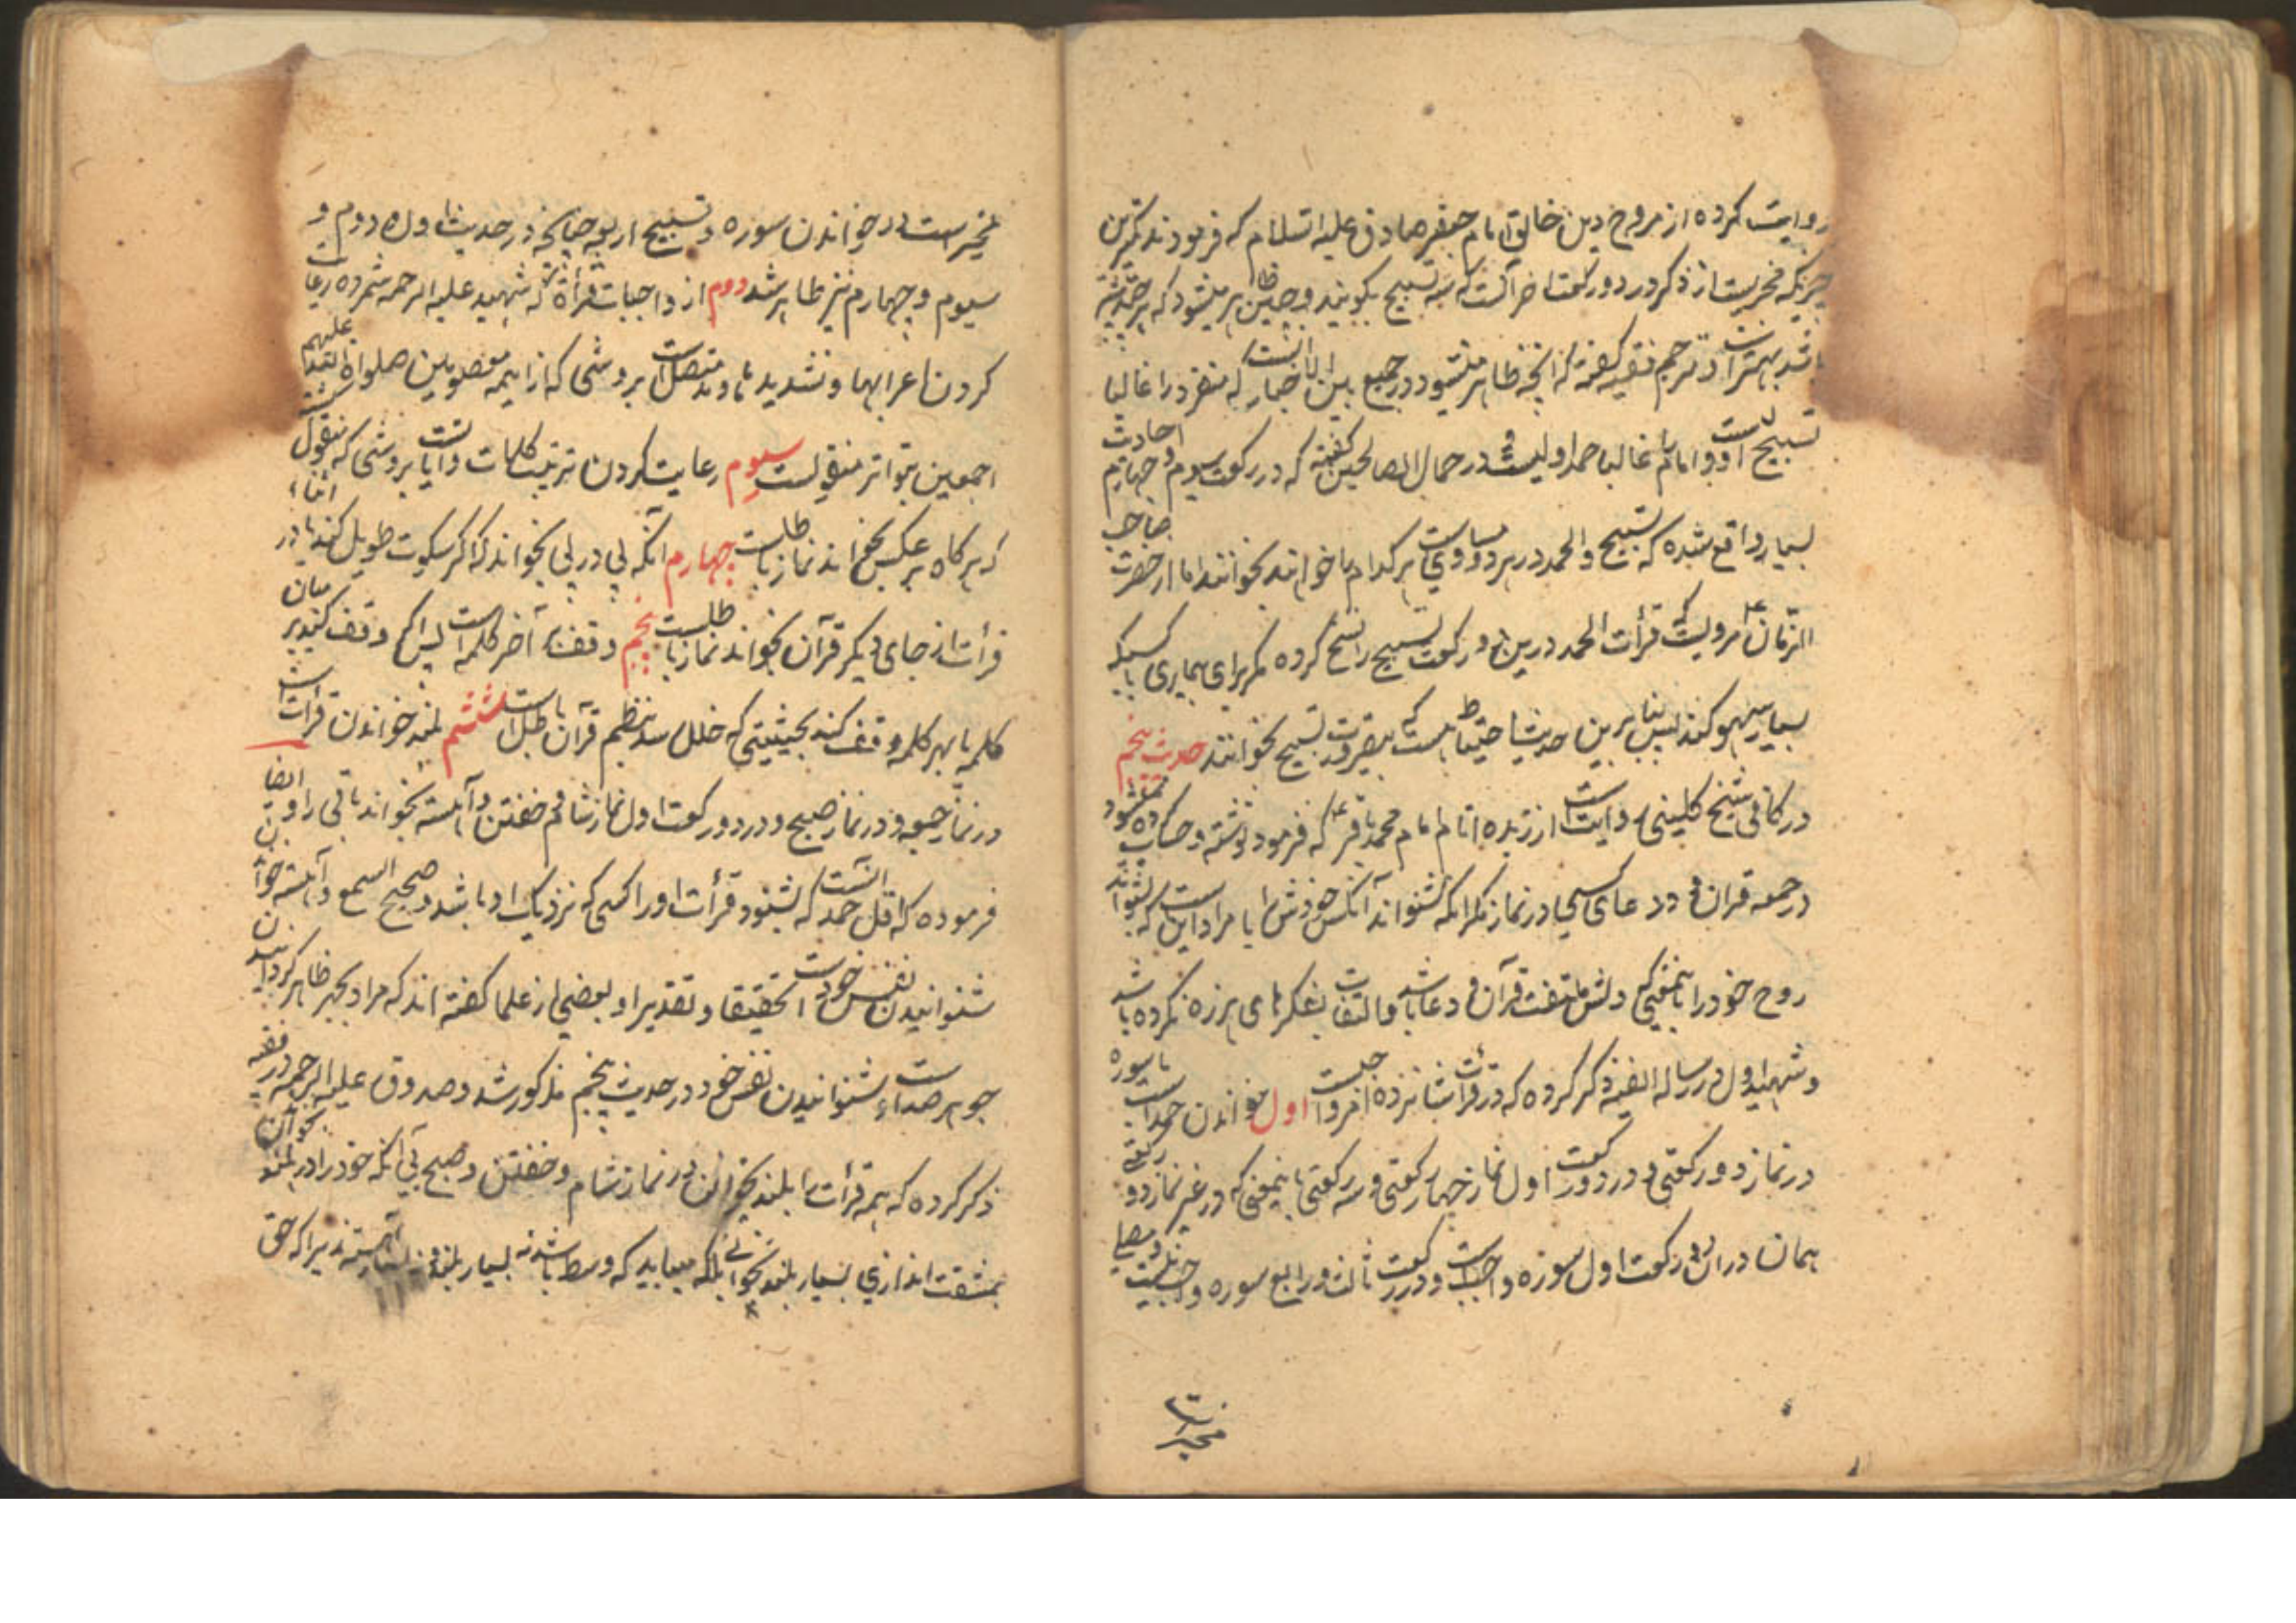 روایت کرده از مروج دین خالق امام جعفر صادق علیه السلام که فرمودند کمترین
چیزیکه مخیریست از ذکر در دو رکعت اخر آنست که سه تسبیح بگویند و چنین ظاهر میشود که هر چند بیشتر
باشد بهتر است و مترجم فقیه گفته که آنچه ظاهر میشود در جمع بین الاخبار اینست که منفرد را غالبا
تسبیح اولیست و امام را غالبا حمد اولیست و در جمال الصالحین گفته که در رکعت سیوم و چهارم احادیث
بسیار واقع شده که تسبیح و الحمد در هر دو مساویست هر کدام را خواهند بخوانند اما از حضرت صاحب
الزمان ع مرویست که قرأت الحمد درین دو رکعت تسبیح را نسخ کرده مگر برای بیماری یا کسیکه
بسیار سهو کند پس بنا برین حدیث احتیاط هست که بغیر ضرورت تسبیح نخوانند حدیث پنجم
در کافی شیخ کلینی روایت است از زبده انام امام محمد باقر ع که فرمود نوشته و حساب کرده نمیشود
در جمعه قران و دعای کسی در نماز مگر آنکه شنواند آنکس خودش را یا مراد این است که بشنواند
روح خود را بمعنی که دلش ملتفت قرآن و دعا باشد و التفات بفکرهای هرزه نکرده باشد
و شهید اول در رساله الفیه ذکر کرده که در قرائت شانزده امر واجبست اول خواندن حمد است با سوره
در نماز دو رکعتی و در دو رکعت اول نماز چهار رکعتی و سه رکعتی باینمعنی که در غیر نماز دو رکعتی
همان در ان دو رکعت اول سوره واجب است و در رکعت ثالث و رابع سوره واجب نیست و مصلی
مخیر است
مخیر است در خواندن سوره و تسبیح اربعه چنانچه در حدیث اول و دوم و
سیوم و چهارم نیز ظاهر شد دوم از واجبات قرأة که شهید علیه الرحمه شمرده رعایت
کردن اعرابها و تشدیدها و مد متصل است بروشی که از ایمه معصومین صلواة الله علیهم
اجمعین بتواتر منقولست سیوم رعایت کردن ترتیب کلمات و آیاتست بروشی که منقول
که هر کاه بر عکس بخواند نماز باطلست چهارم آنکه پی در پی بخواند که اگر سکوت طویل کند یا در اثناء
قرأت از جای دیگر قرآن بخواند نماز باطلست پنجم وقف بر آخر کلمه است پس اگر وقف کند در میان
کلمه یا بهر کلمه وقف کند بحیثیتی که خلل رسد بنظم قرآن باطل است ششم بلند خواندن قرأت است
در نماز جمعه و در نماز صبح و در دو رکعت اول نماز شام و خفتن و آهسته بخواند باقی را و ایضا
فرموده که اقل جهر آنست که بشنود قرأت او را کسی که نزدیک او باشد و صحیح السمع و آهسته خواندن
شنوانیدن نفس خود است تحقیقا و تقدیرا و بعضی از علما گفته اند که مراد بجهر ظاهر کردانیدن
جوهر صداست و شنوانیدن نفس خود در حدیث پنجم مذکور شد و صدوق علیه الرحمه در فقیه
ذکر کرده که همه قرأت را بلند بخوان در نماز شام و خفتن و صبح بی آنکه خود را در بلند خواندن
بمشقت اندازی بسیار بلند نخوانی بلکه میباید که وسط باشد نه بسیار بلند و نه بسیار آهسته زیرا که حق